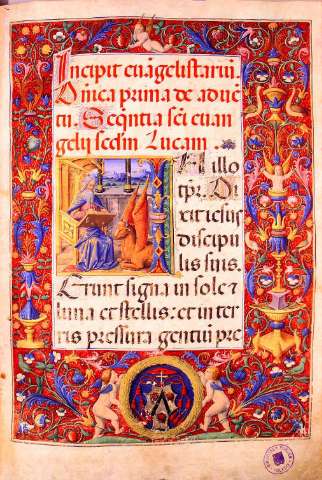 Incipit euangelistariū.
Dn̄ica prima de aduē
tu. Seq̄ntia sc̄i euan
gelij scd̄m Lucam.
In illo
tp̄r. Di
xit iesus
discipu
lis suis.
Erunt signa in sole ⁊
luna et stellis: et in ter
ris pressura gentiū pre